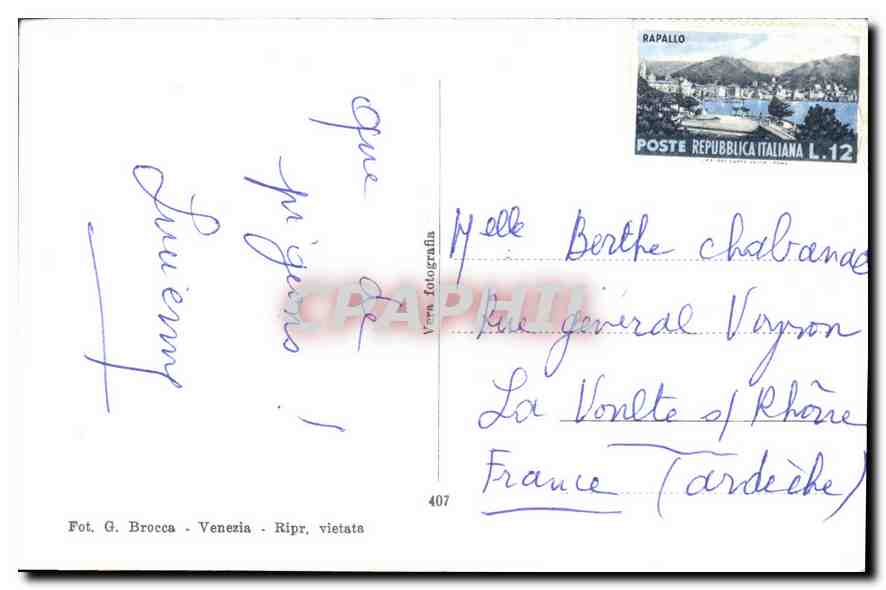 que de
pigeons !
RAPALLO
POSTE REPUBBLICA ITALIANA L.12
Melle Berthe Chabanas
Rue général Voyron
La Voulte s/ Rhône
France (ardèche)
Vera fotografia
CPAPHIL
407
Fot. G. Brocca - Venezia - Ripr. vietata